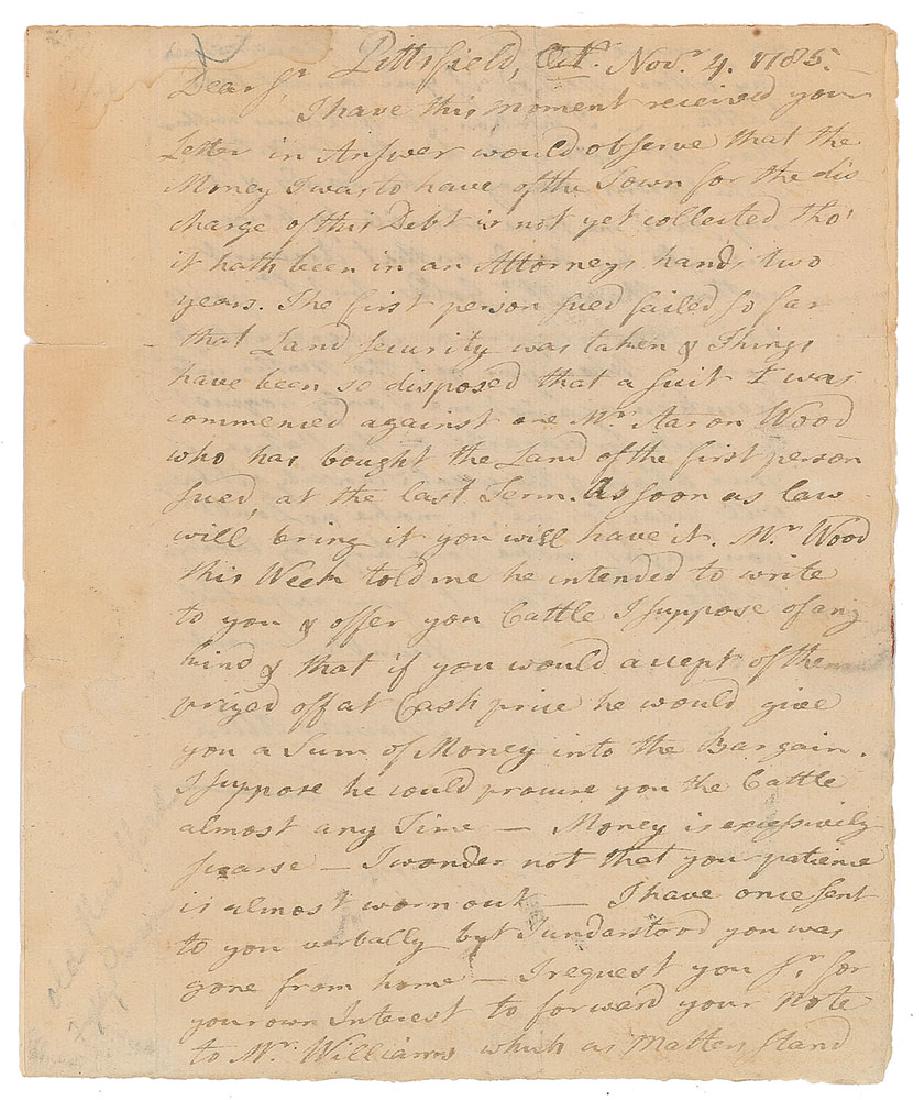 Pittsfield, Octr. Novr. 4. 1785.
Dear Sr.
I have this moment received your
Letter in Answer would observe that the
Money I was to have of the Town for the dis
charge of this Debt is not yet collected tho'
it hath been in an Attorneys hands two
years. The first person sued failed so far
that Land security was taken & Things
have been so disposed that a suit I was
commenced against one Mr. Aaron Wood
who has bought the Land of the first person
sued, at the last Term. As soon as law
will bring it you will have it. Mr. Wood
this Week told me he intended to write
to you & offer you Cattle I suppose of any
kind & that if you would accept of them
prized off at Cash price he would give
you a Sum of Money into the Bargain.
I suppose he could procure you the Cattle
almost any Time — Money is excessively
scarse — I wonder not that you patience
is almost worn out — I have once sent
to you verbally but I understood you was
gone from home — I request you Sr. for
your own Interest to forward your Note
to Mr. Williams which as Matters stand